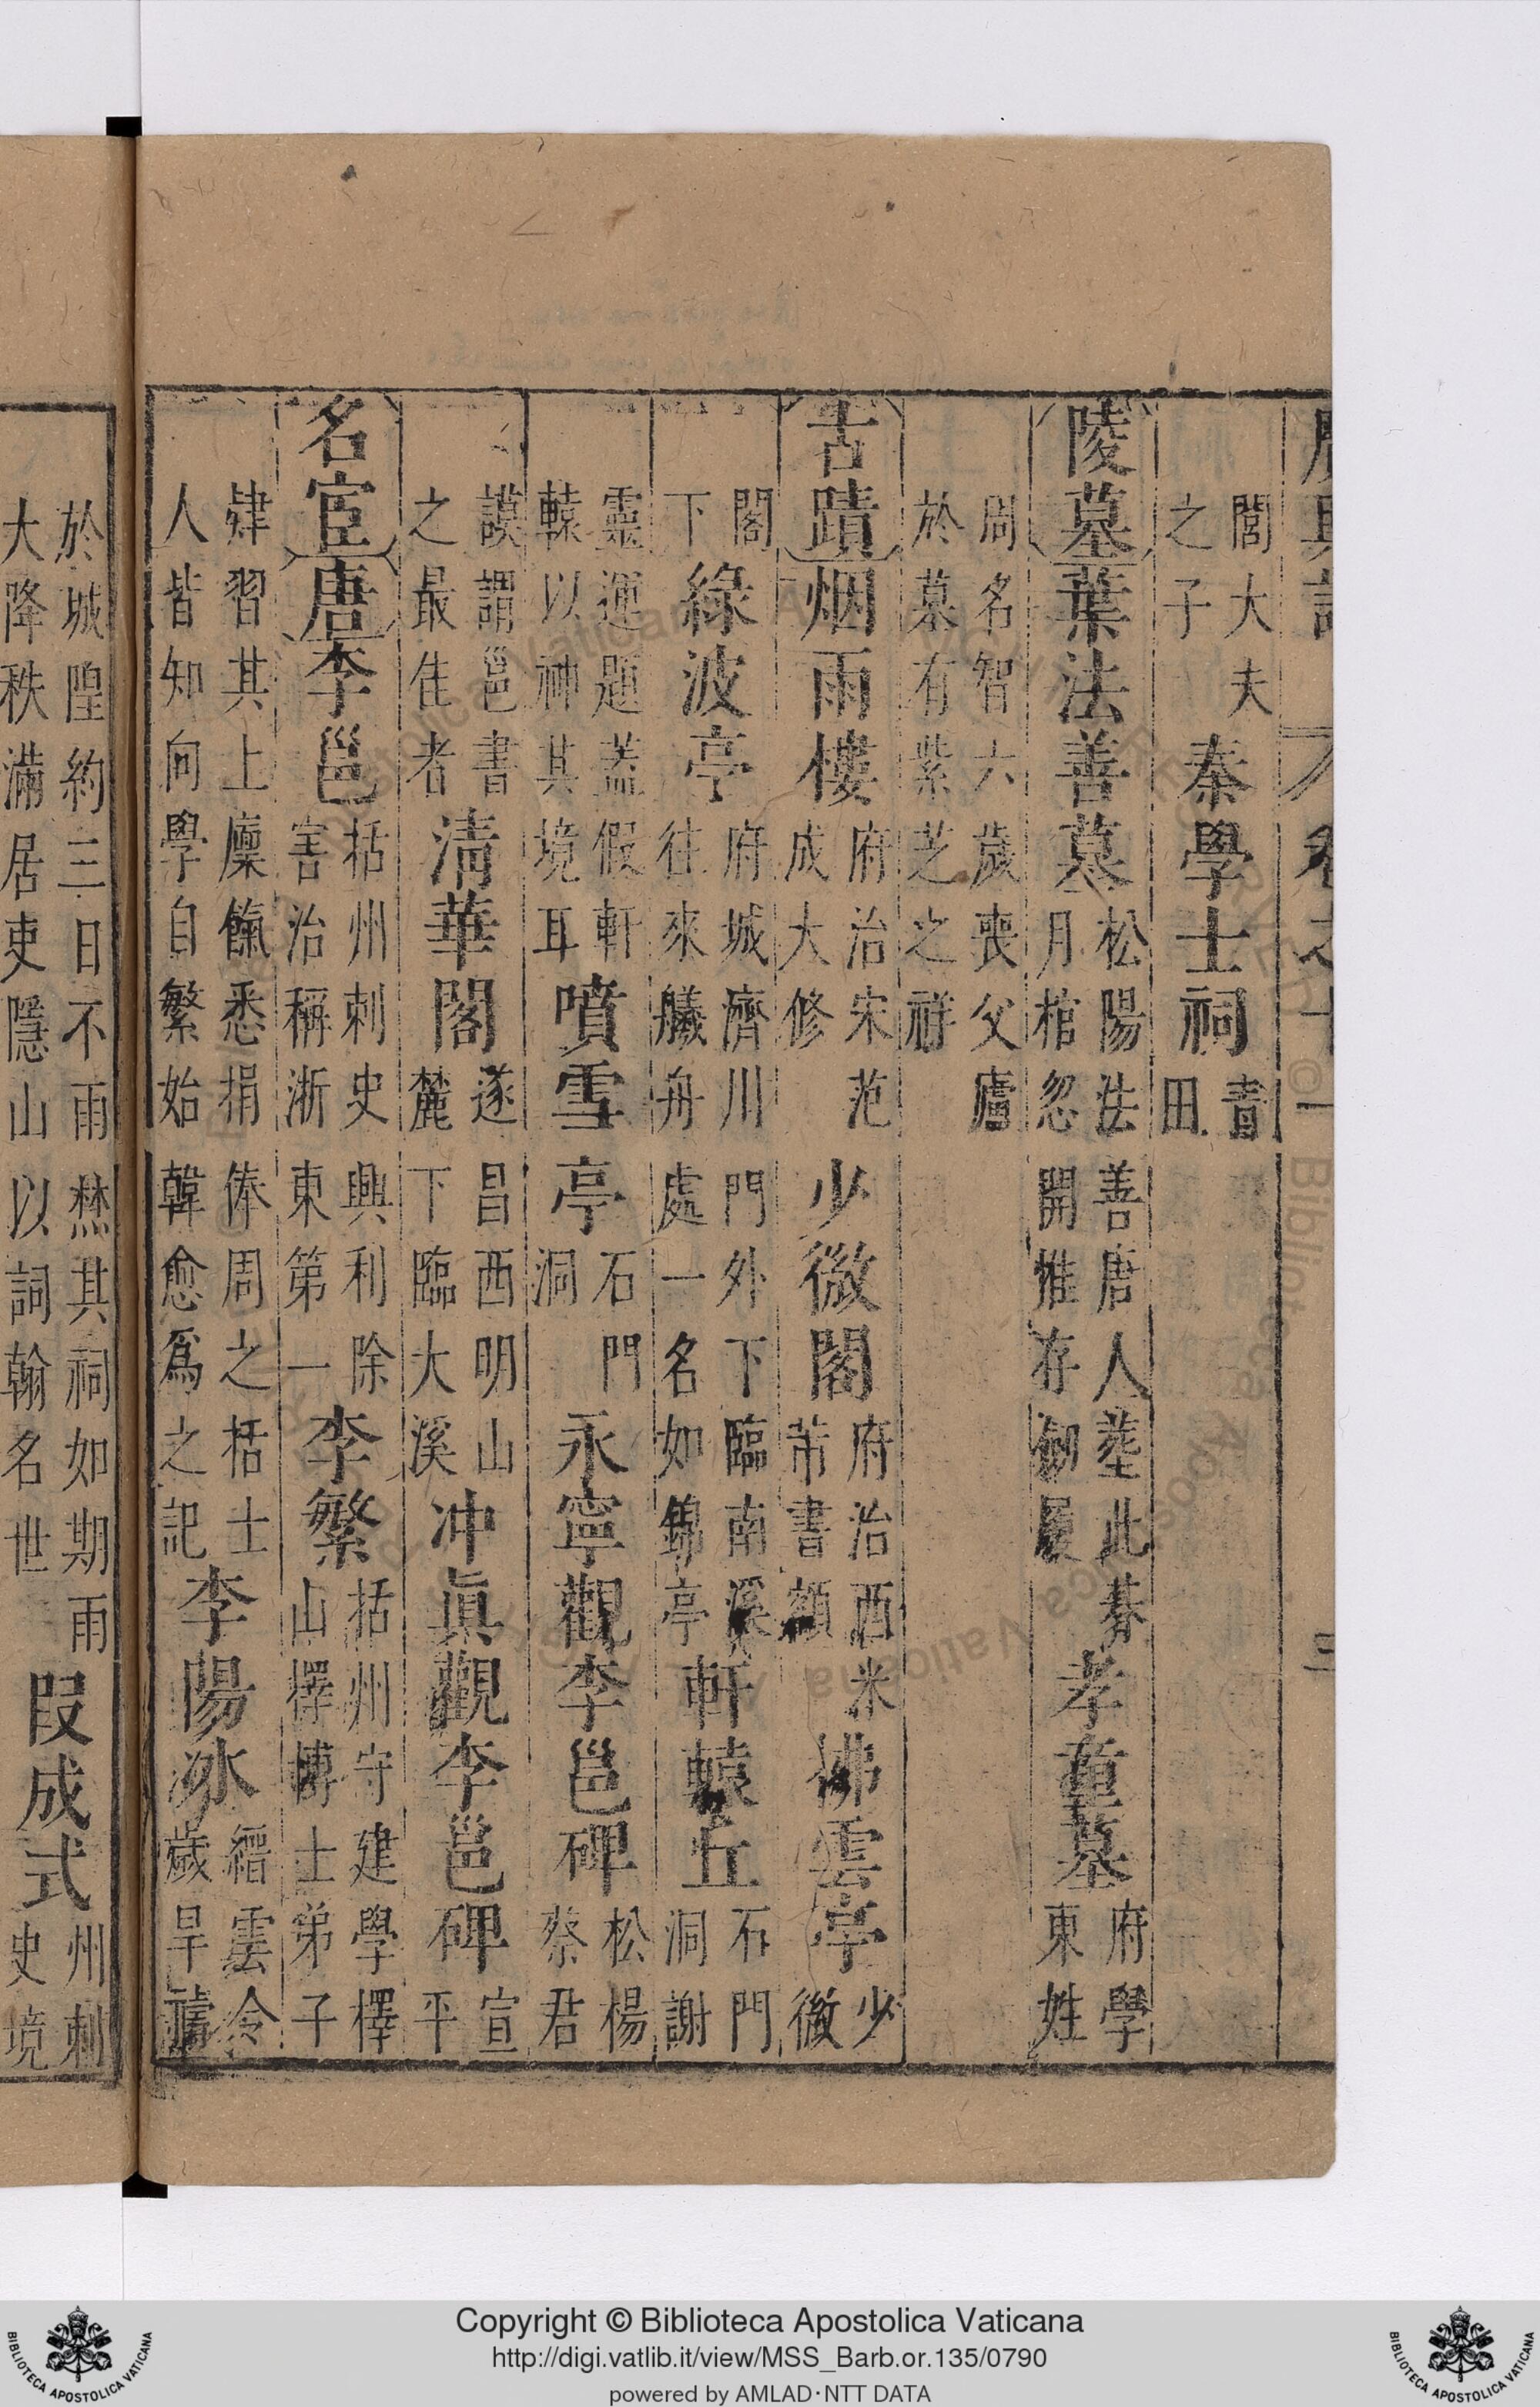 廣輿記 卷之十一 三
閻大夫
之子
秦學士祠
青
田
陵墓 葉法善墓
松陽法善唐人葬此朞
月棺忽開惟存劒履
孝童墓
府學
東姓
周名智六歲喪父廬
於墓有紫芝之祥
古蹟 烟雨樓
府治宋范
成大修
少微閣
府治西米
芾書額
拂雲亭
少
微
閣
下
綠波亭
府城濟川門外下臨南溪
往來艤舟處一名如錦亭
軒轅丘
石門
洞謝
靈運題蓋假軒
轅以神其境耳
噴雪亭
石門
洞
永寧觀李邕碑
松楊
蔡君
謨謂邕書
之最佳者
清華閣
遂昌西明山
麓下臨大溪
冲眞觀李邕碑
宣
平
名宦 唐 李邕
括州刺史興利除
害治稱浙東第一
李繁
括州守建學擇
山擇博士弟子
肄習其上廩餼悉捐俸周之括士
人皆知向學自繁始韓愈爲之記
李陽冰
縉雲令
歲旱禱
於城隍約三日不雨焚其祠如期雨
大降秩滿居吏隱山以詞翰名世
段成式
州刺
史境
Copyright © Biblioteca Apostolica Vaticana
http://digi.vatlib.it/view/MSS_Barb.or.135/0790
powered by AMLAD·NTT DATA
BIBLIOTECA APOSTOLICA VATICANA
BIBLIOTECA APOSTOLICA VATICANA